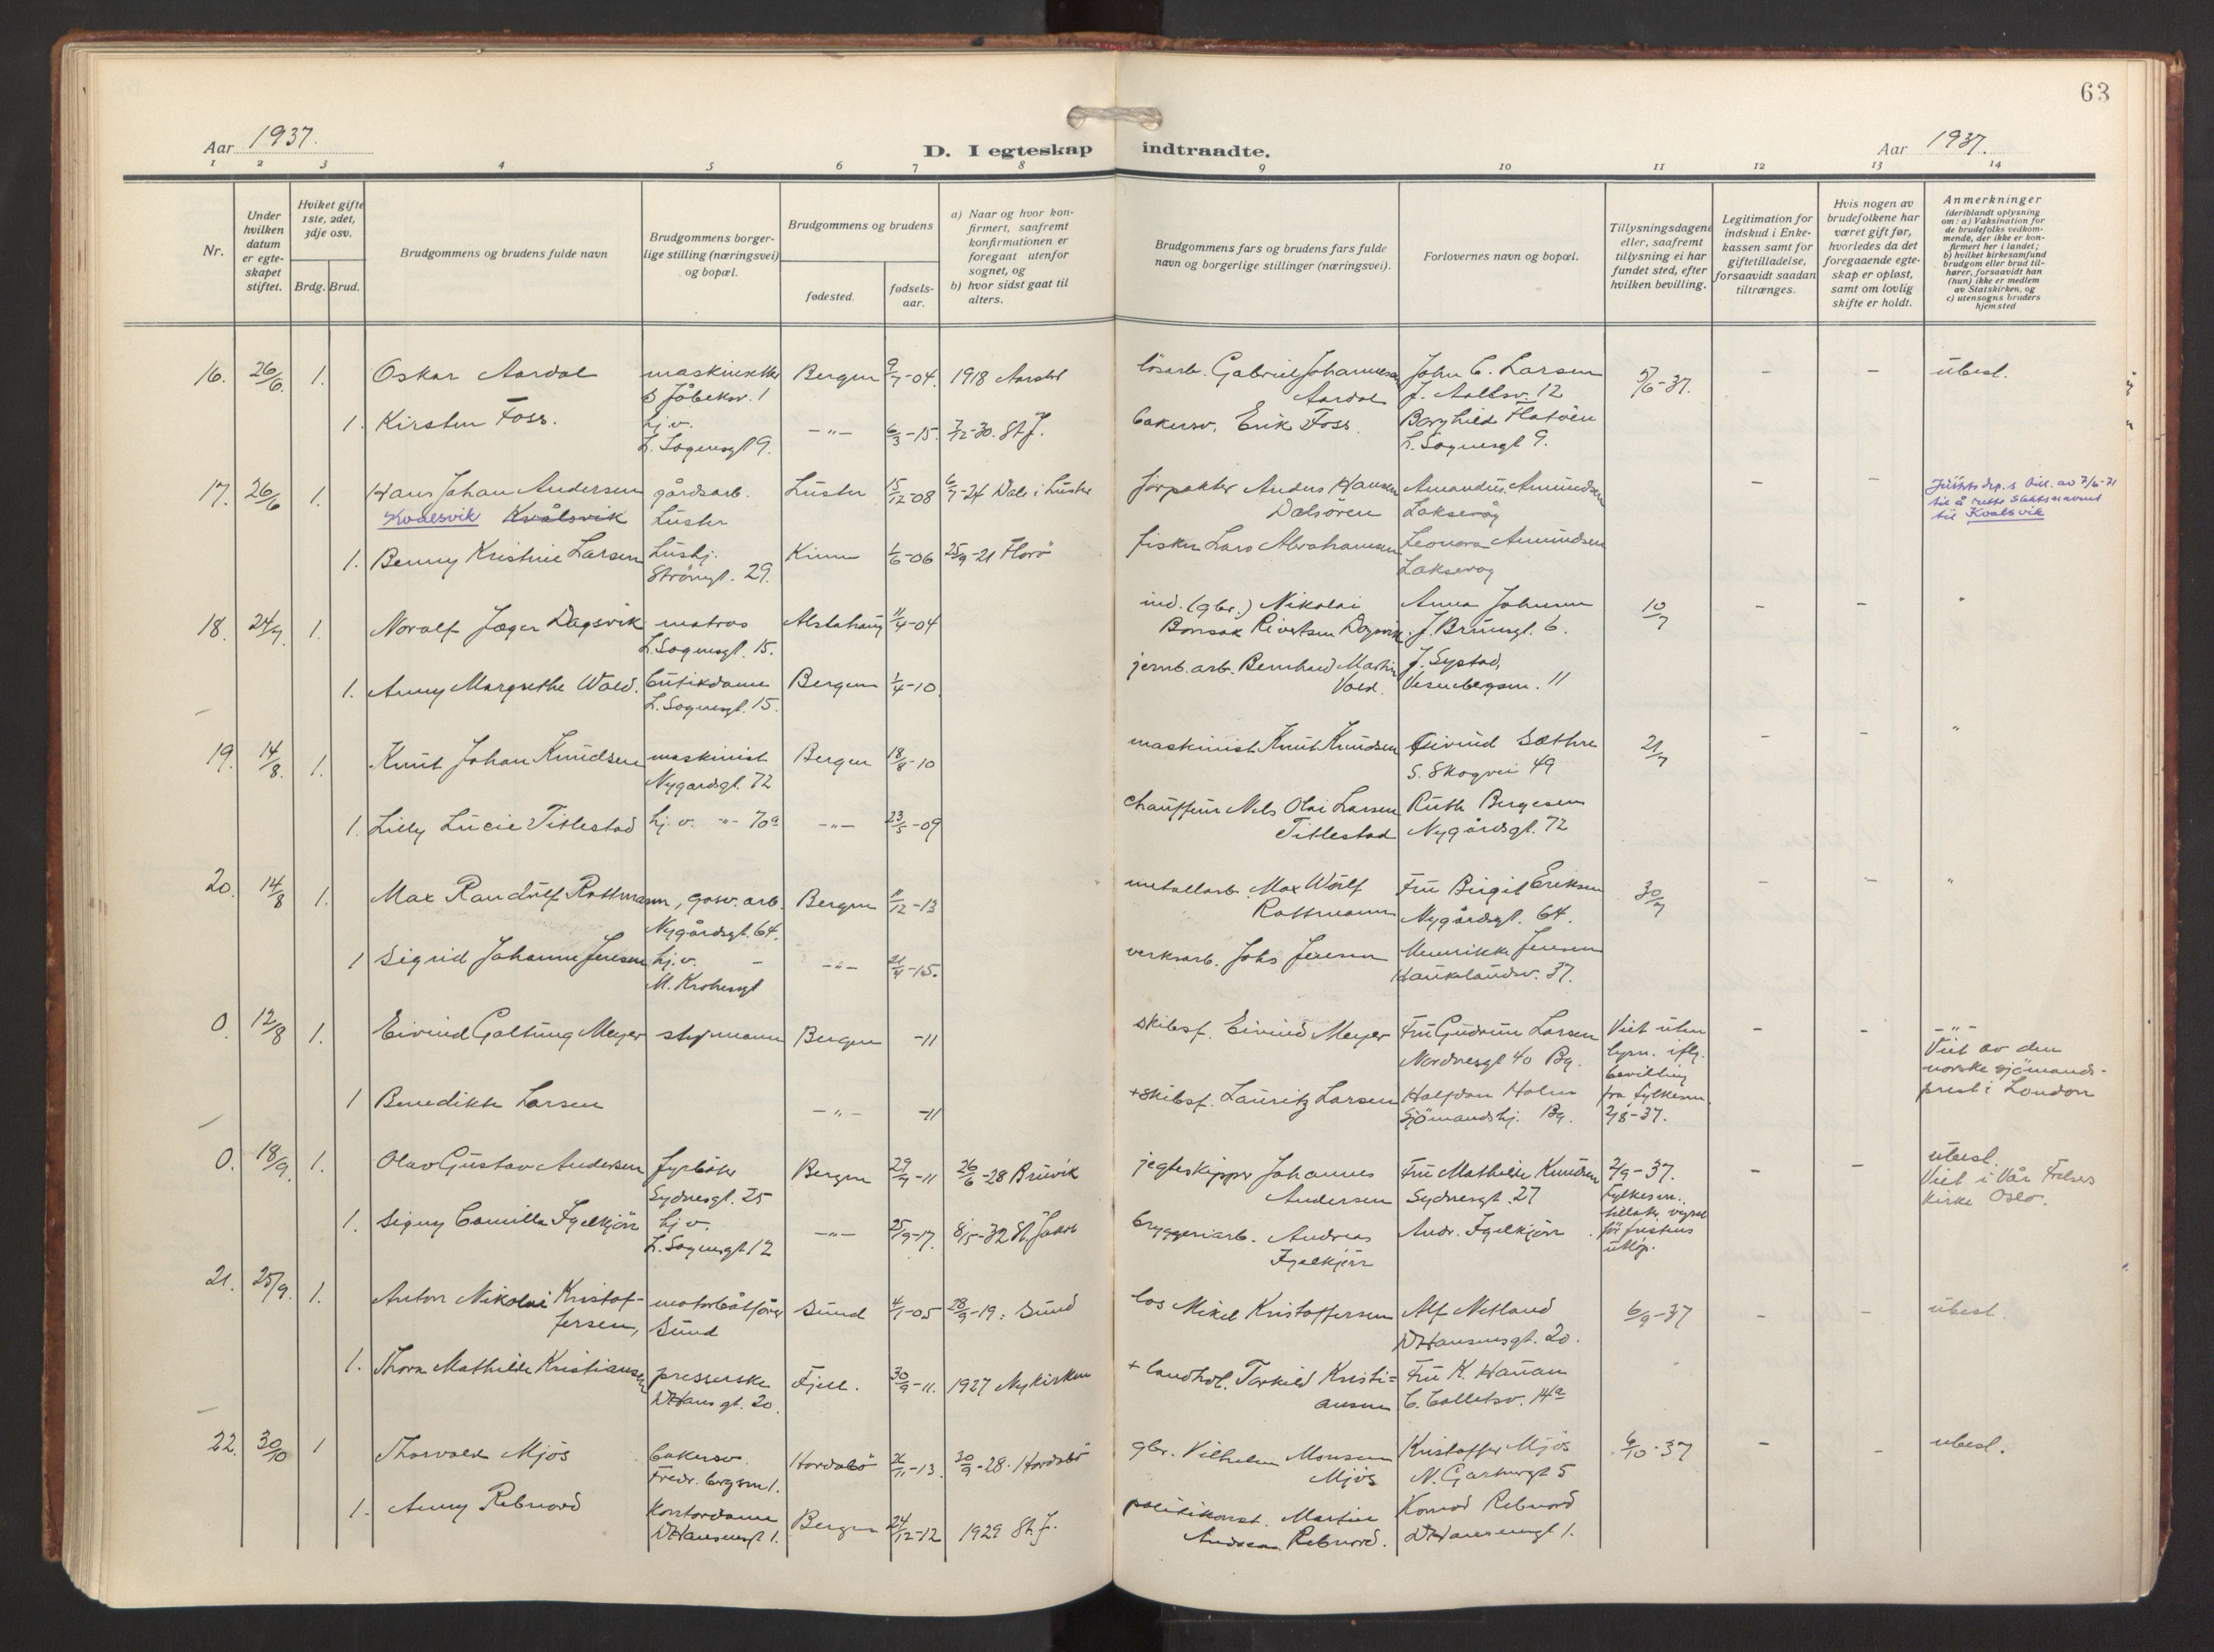 63
Aar 1937.
D. I egteskap indtraadte.
Aar 1937.
1 2 3 4 5 6 7 8 9 10 11 12 13 14
Nr.
Under hvilken datum er egteskapet stiftet.
Hvilket gifte 1ste, 2det, 3dje osv.
Brdg. Brud.
Brudgommens og brudens fulde navn
Brudgommens borgerlige stilling (næringsvei) og bopæl.
Brudgommens og brudens
fødested.
fødselsaar.
a) Naar og hvor konfirmert, saafremt konfirmationen er foregaat utenfor sognet, og
b) hvor sidst gaat til alters.
Brudgommens fars og brudens fars fulde navn og borgerlige stillinger (næringsvei).
Forlovernes navn og bopæl.
Tillysningsdagene eller, saafremt tillysning ei har fundet sted, efter hvilken bevilling.
Legitimation for indskud i Enkekassen samt for giftetilladelse, forsaavidt saadan tiltrænges.
Hvis nogen av brudefolkene har været gift før, hvorledes da det foregaaende egteskap er opløst, samt om lovlig skifte er holdt.
Anmerkninger
(deriblandt oplysning om: a) Vaksination for de brudefolks vedkommende, der ikke er konfirmert her i landet;
b) hvilket kirkesamfund brudgom eller brud tilhører, forsaavidt han (hun) ikke er medlem av Statskirken, og
c) utensogns bruders hjemsted
16. 26/6 1. Oskar Aardal Bergen 9/7-04. 1918 Aarstad løsarb. Gabriel Johannesen John C. Larsen 5/6-37. - - ubesl.
Aardal J. Aallsv. 12
1. Kirsten Foss. hj.v. -"- 6/3-15. 7/12-30. St. J. bakersv. Erik Foss. Borghild Flatøen
L. Sognesgt 9. L. Sognesgt 9.
17. 26/6 1. Hans Johan Andersen gårdsarb. Luster 15/12-08 6/7-24 Dale i Luster forpakter Anders Hansen Amandus Amundsen - - Justitsdep.s bill. av 7/6-71
Kvalsvik Kvålsvik Luster Dalsøren Laksevåg til å rette slektsnavnet
til Kvalsvik
1. Benny Kristine Larsen Hushj. Kinn 1/6-06 25/9-21 Florø fisker Lars Abrahamsen Leonora Amundsen
Strømgt. 29. Laksevåg
18. 24/7 1. Noralf Jæger Dagsvik matros Alstahaug 11/4-04 ind. (gbr.) Nikolai Anna Johnsen 10/7 - - "
L. Sognesgt. 15. Bonsak Rivertsen Dagsvik. J. Brunsgt. 6.
1. Anny Margrethe Wold. butikdame Bergen 1/4-10. jernb. arb. Bernhard Martin J. Systad,
L. Sognesgt. 15. Vold. 11
19. 14/8. 1. Knut Johan Knudsen maskinist Bergen 18/8-10 maskinist Knut Knudsen Eivind Sæthre 21/7 - - "
Nygardsgt. 72 S. Skogvei 49
1. Lilly Lucie Titlestad hj. v. -"- 70a -"- 23/5-09 chauffeur Nils Olai Larsen Ruth Bergesen
Titlestad Nygårdsgt. 72
20. 14/8 1. Max Randulf Rottmann, gasv. arb. Bergen 11/12-13 metallarb. Max Wolf Fru Birgit Eriksen 30/7 - - "
Nygårdsgt. 64. Rottmann Nygårdsgt. 64.
1 Sigrid Johanne Jensen hj.v. - -"- 21/4-15. verksarb. Johs Jensen Henrikke Jensen
M. Krohnsgt Haukelandsv. 37.
0. 12/8 1. Eivind Galtung Meyer styrmann Bergen -11 skibsf. Eivind Meyer Fru Gudrun Larsen Viet uten - - -"-
Nordnesgt 40 Bg. lysn. iflg. Viet av den
bevilling norske sjömands-
1 Benedikte Larsen -"- -11 +skibsf. Lauritz Larsen Halfdan Holm fra fylkesm. prest i London
Sjömandshj. Bg. 2/8-37.
0. 18/9. 1. Olav Gustav Andersen fyrbøter Bergen 29/4-11 26/6-28 Bruvik jegteskipper Johannes Fru Mathilde Knudsen 2/9-37. - - ubesl.
Sydnesgt. 25 Andersen Sydnesgt. 27 Fylkesm. Viet i Vår Frelsers
tillat. vigsel kirke Oslo.
1. Signy Camilla Fjelkjörr hj.v. -"- 25/9-17. 8/5-32 St. Jakob bryggeriarb. Andreas Andr. Fjelkjörr för fristens
L. Sognesgt 12 Fjelkjörr utløp.
21. 25/9. 1. Anton Nikolai Kristof- motorbåtfører Sund 4/1-05 28/9-19: Sund los Mikel Kristoffersen Alf Netland 6/9-37 - - ubesl.
fersen, Sund DHansensgt. 20.
1. Thora Mathilde Kristiansen presserske Fjell. 30/9-11. 1927 Nykirken + landhdl. Torkild Kristi- Fru K. Hauan
DHansgt. 20. ansen C. Colletsv. 14a
22. 30/10 1 Thorvald Mjös bakersv. Hordabö 26/11-13. 30/9-28. Hordabö gbr. Vilhelm Monsen Kristoffer Mjös 6/10-37 - - ubesl.
Fredr. bergsm 1. Mjös N. Gjartnergt 5
1. Anny Rebnord Kontordame Bergen 24/12-12 1929 St. J. politikonst. Martin Konrad Rebnord
DHansensgt 1. Andreas Rebnord. DHansensgt 1.